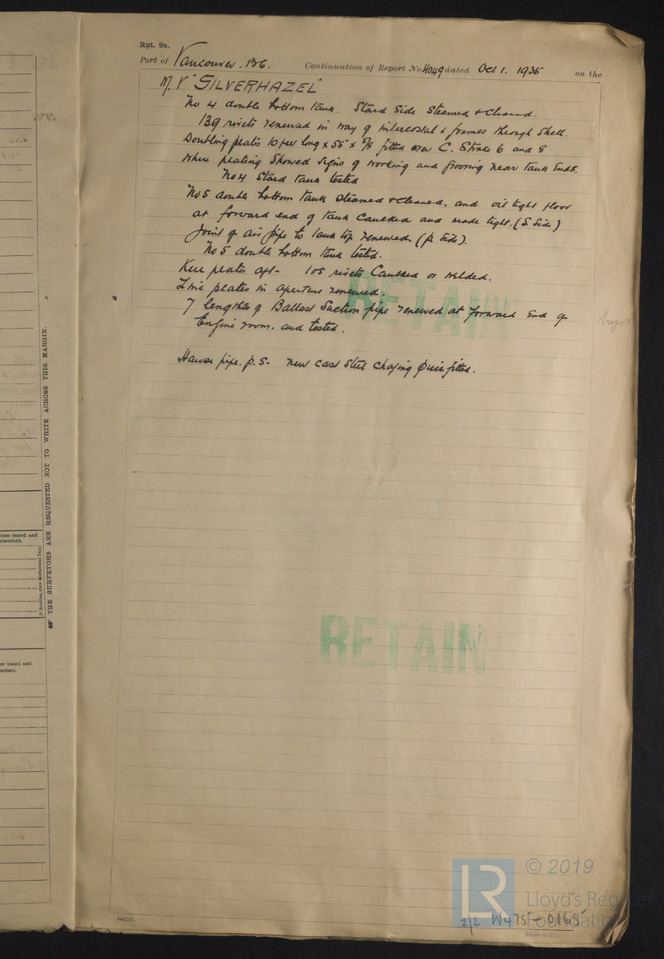 Rpt. 9a.
Port of Vancouver. B.C. Continuation of Report No. 4049 dated Oct 1. 1935 on the
M.V "SILVERHAZEL"
No 4 double bottom tank. Stard Side Steamed & Cleaned.
139 rivets renewed in way of intercostal & frames through shell.
Doubling plates 10 feet long x 55" x 5/8 fitted over C. Strake 6 and 8
where plating showed signs of working and grooving near tank ends.
No 4 Stard tank tested
No 5 double bottom tank steamed & cleaned, and oil tight floor
at forward end of tank caulked and made tight. (S Side)
Joint of air pipe to tank top renewed (P. Side).
No 5 double bottom tank tested.
Keel plates aft - 105 rivets Caulked or welded.
Zinc plates in aperture renewed.
7 lengths of Ballast Suction pipe renewed at forward end of
Engine room. and tested.
Hawse pipe. P.S. - new cast steel chafing fitted.
RETAIN
RETAIN
THE SURVEYORS ARE REQUESTED NOT TO WRITE ACROSS THIS MARGIN.
when tested and
tested and
© 2019
LR
Lloyd's Register
Foundation
2/2 W475-0165